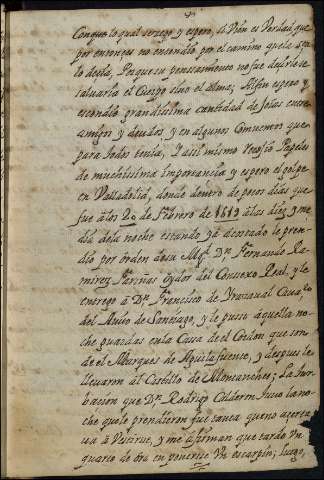 Conque lo qual se rezeó y esperó, si bien es Verdad, que
por entonces no encendio por el camino que la
lo decía, Porque su pensamiento no fue de librarse de
salvarla el Cuerpo sino el Alma; Alfin espero y
escondio grandissima cantidad de Joias entre
amigos y deudos, y en algunos Conventos que
para todos tenia, y asi mismo Papeles
de muchissima importancia y espero el golpe
en Valladolid, donde dentro de pocos dias que
fue a los 20 de Febrero de 1619 a las diez y me-
dia de la noche estando ya acostado le pren-
dio por orden de su Magd. Dn. Fernando Ra-
mirez Fariñas oydor del Consexo Real, y le
entrego á Dn. Francisco de Yrarzaval Cavallo.
del Avito de Santiago, y le puso aquella no-
che guardas en la Casa de el Cordon que son
de el Marques de Aguilafuente, y despues le
llevaron al Castillo de Montanches; La tur-
bacion que Dn. Rodrigo Calderon tuvo la no-
che que le prendieron fue tanta que no acerta-
va á Vestirse, y me afirman que tardo Un
quarto de ora en ponerse Un escarpin; luego,